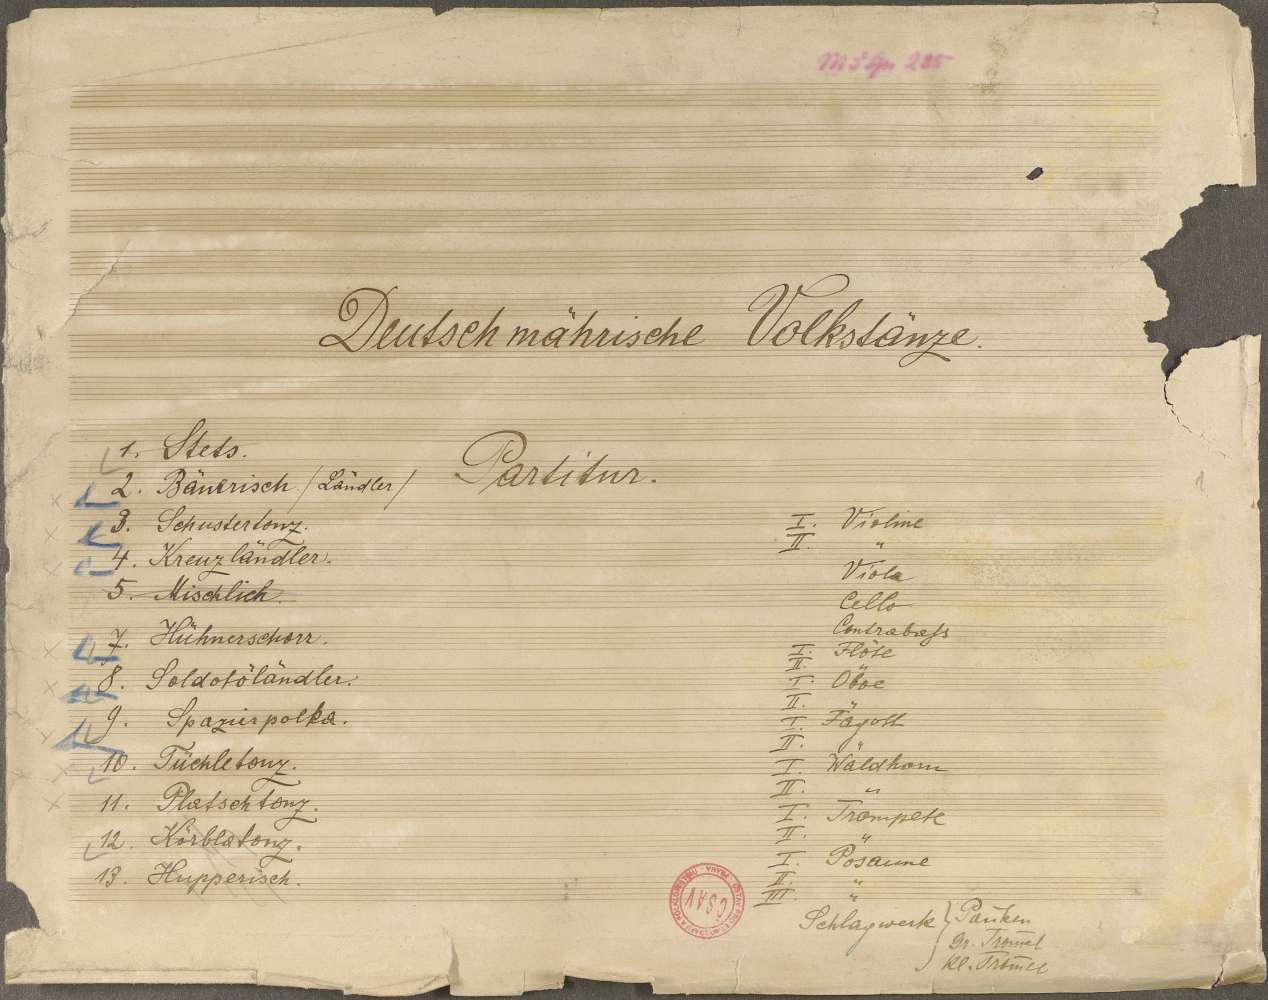 Deutschmährische Volkstänze.
Partitur.
1. Stets.
2. Bäuerisch /Ländler/
3. Schustertonz.
4. Kreuzländler.
5. Mischlich.
7. Hühnerschorr.
8. Soldotöländler.
9. Spazierpolka.
10. Tüchletonz.
11. Platschtonz.
12. Körblatonz.
13. Hupperisch.
I. Violine
II. "
Viola
Cello
Contrabass
I. Flöte
II. "
I. Oboe
II.
I. Fagott
II. "
I. Waldhorn
II. "
I. Trompete
II. "
I. Posaune
II. "
III. "
Schlagwerk } Pauken
Gr. Tromel
Kl. Tromel
ČSAV